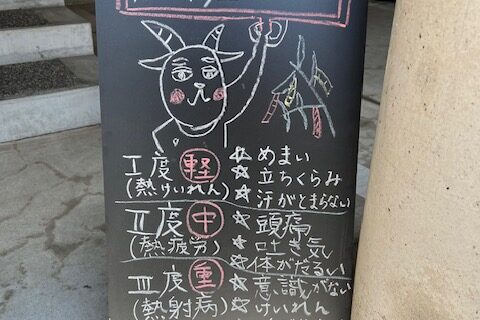 I度 軽 ☆ めまい
(熱けいれん) ☆ 立ちくらみ
☆ 汗がとまらない
II度 中 ☆ 頭痛
(熱疲労) ☆ 吐き気
☆ 体がだるい
III度 重 ☆ 意識がない
(熱射病) ☆ けいれん